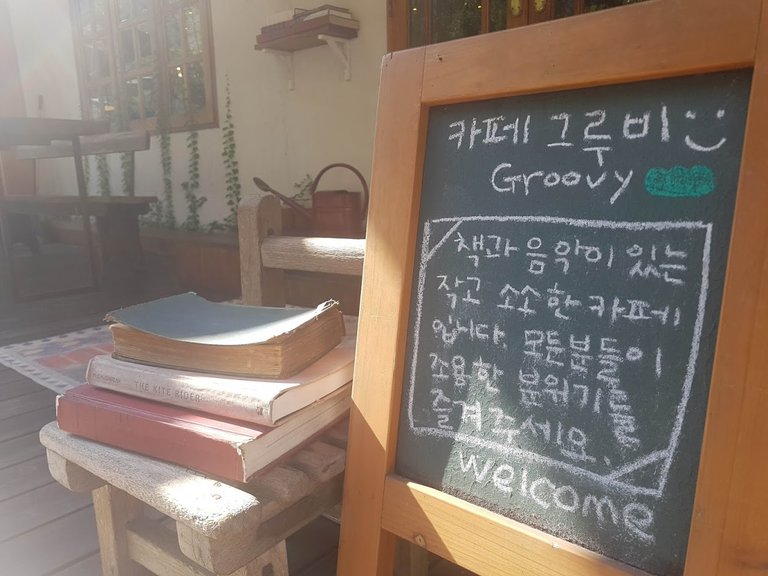 카페 그루비
Groovy
책과 음악이 있는
작고 소소한 카페
입니다. 모든분들이
조용한 분위기를
즐겨주세요.
welcome
THE KITE RIDER